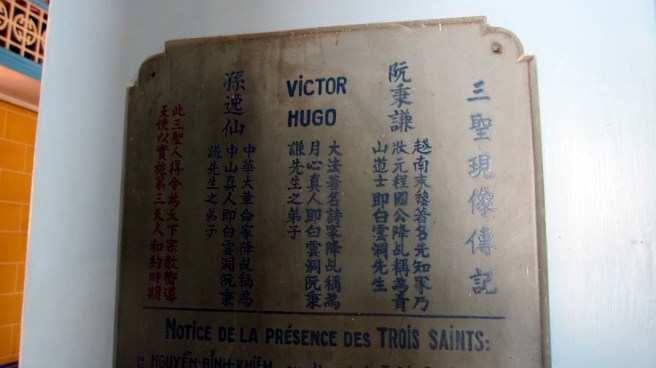 三聖現像傳記
阮秉謙
越南末黎著名先知家乃
狀元程國公降乩稱為青
山道士即白雲洞先生
VICTOR
HUGO
大法著名詩家降乩稱為
月心真人即白雲洞阮秉
謙先生之弟子
孫逸仙
中華大革命家降乩稱為
中山真人即白雲洞阮秉
謙先生之弟子
此三聖人得令為天下宗教嚮導
師使以實施第三天人和約時期
NOTICE DE LA PRÉSENCE DES TROIS SAINTS:
NGUYỄN-BỈNH-KHIÊM